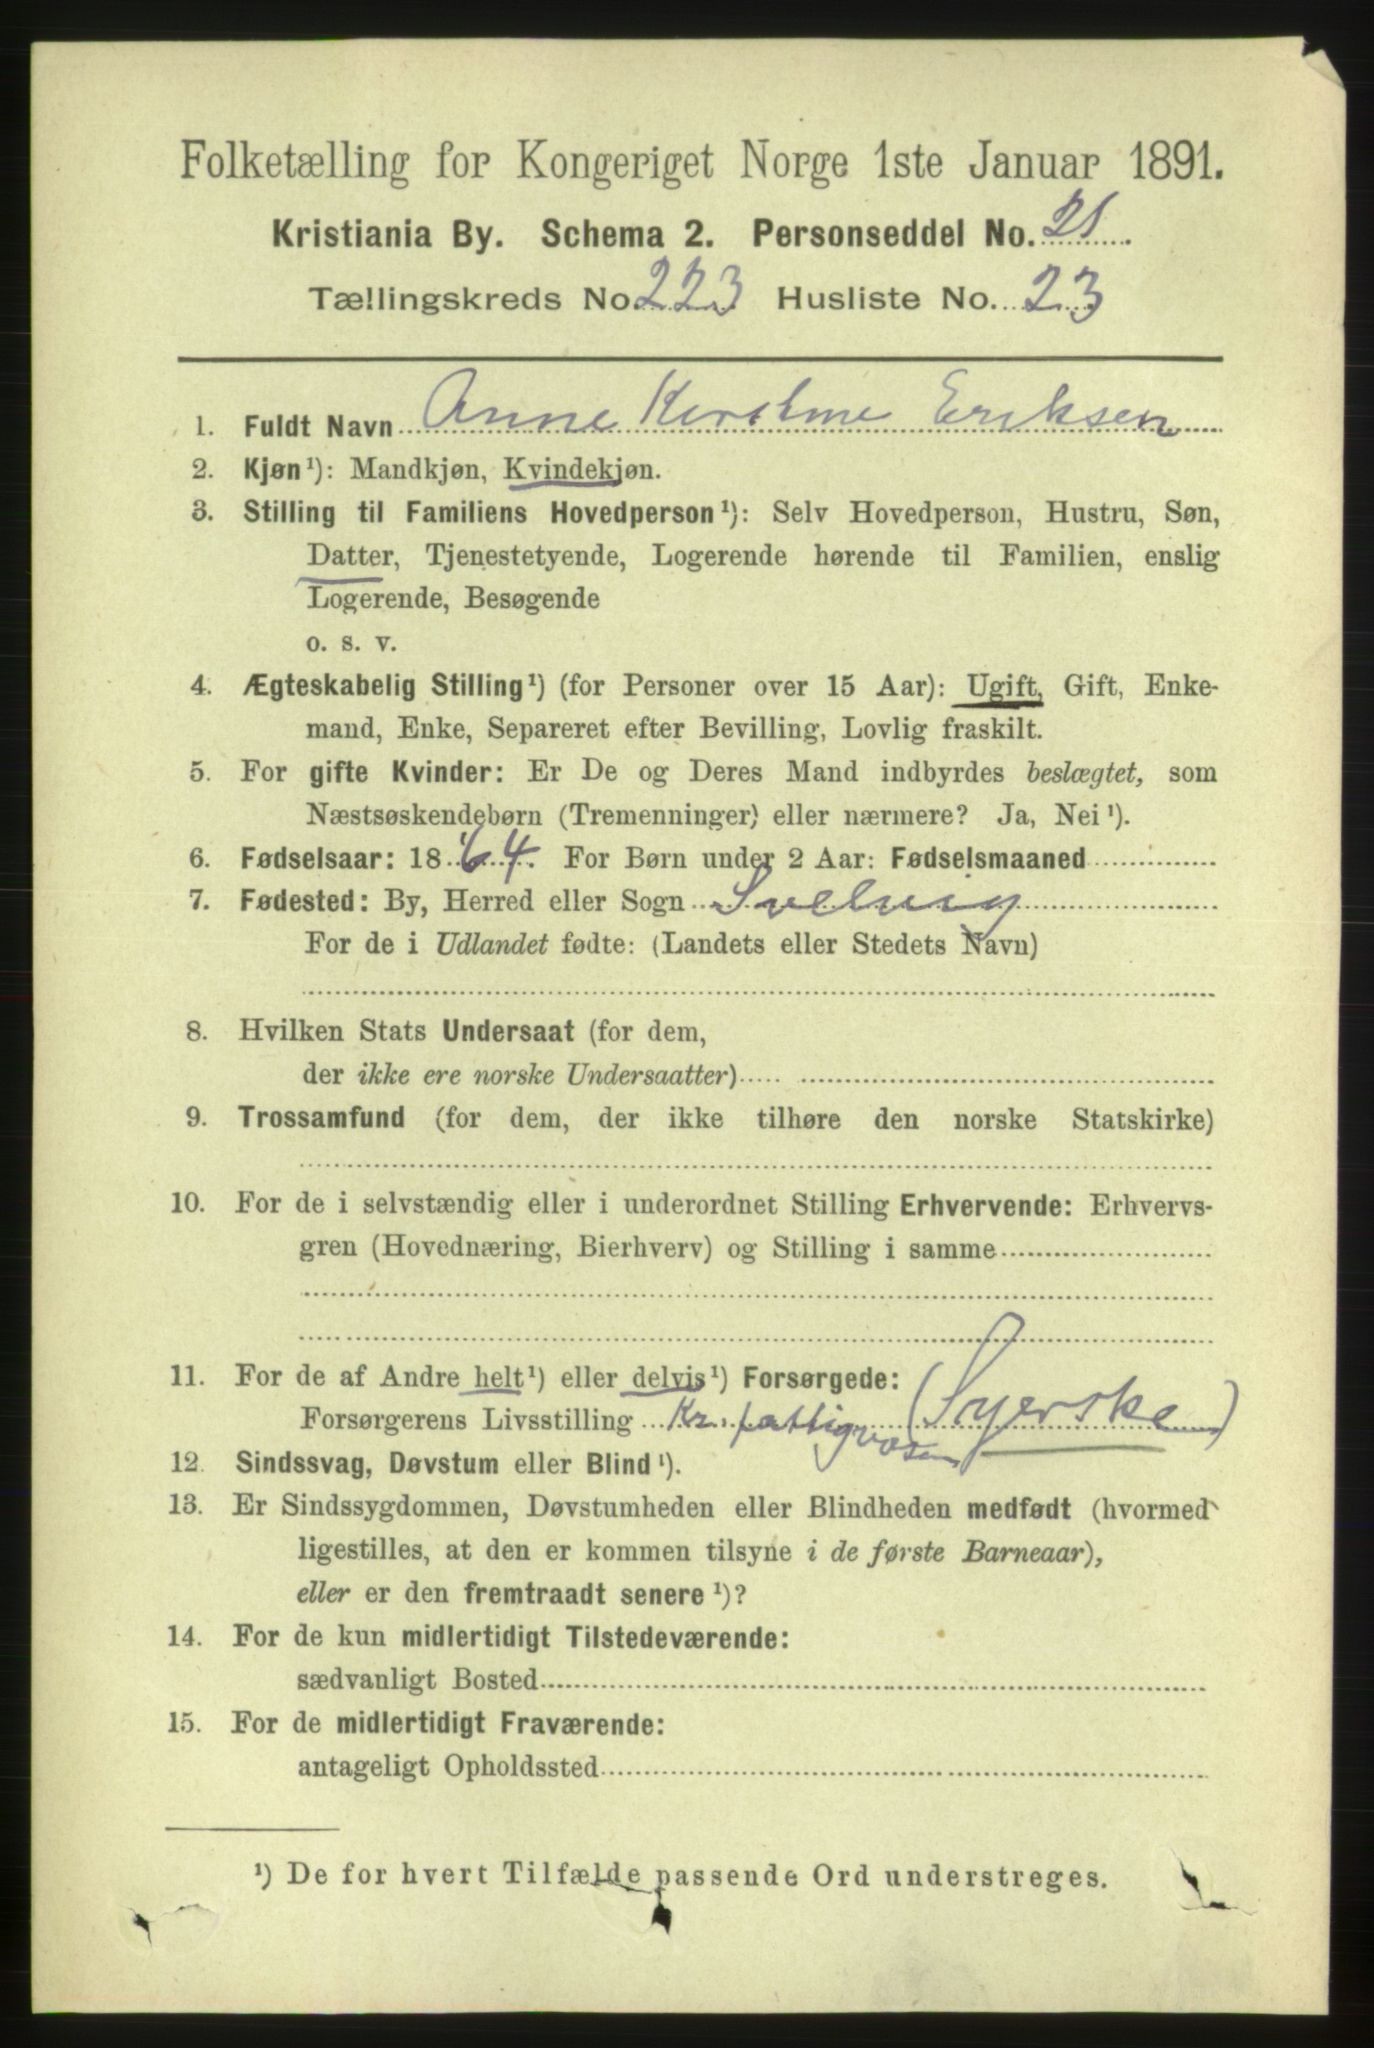 Folketælling for Kongeriget Norge 1ste Januar 1891.
Kristiania By. Schema 2. Personseddel No. 21
Tællingskreds No. 223 Husliste No. 23
1. Fuldt Navn Anne Kirstine Eriksen
2. Kjøn¹): Mandkjøn, Kvindekjøn.
3. Stilling til Familiens Hovedperson¹): Selv Hovedperson, Hustru, Søn,
Datter, Tjenestetyende, Logerende hørende til Familien, enslig
Logerende, Besøgende
o. s. v.
4. Ægteskabelig Stilling¹) (for Personer over 15 Aar): Ugift, Gift, Enke-
mand, Enke, Separeret efter Bevilling, Lovlig fraskilt.
5. For gifte Kvinder: Er De og Deres Mand indbyrdes beslægtet, som
Næstsøskendebørn (Tremenninger) eller nærmere? Ja, Nei¹).
6. Fødselsaar: 1864. For Børn under 2 Aar: Fødselsmaaned
7. Fødested: By, Herred eller Sogn Svelvig
For de i Udlandet fødte: (Landets eller Stedets Navn)
8. Hvilken Stats Undersaat (for dem,
der ikke ere norske Undersaatter)
9. Trossamfund (for dem, der ikke tilhøre den norske Statskirke)
10. For de i selvstændig eller i underordnet Stilling Erhvervende: Erhvervs-
gren (Hovednæring, Bierhverv) og Stilling i samme
11. For de af Andre helt¹) eller delvis¹) Forsørgede:
Forsørgerens Livsstilling Kr. fattigvæsen (Syerske)
12. Sindssvag, Døvstum eller Blind¹).
13. Er Sindssygdommen, Døvstumheden eller Blindheden medfødt (hvormed
ligestilles, at den er kommen tilsyne i de første Barneaar),
eller er den fremtraadt senere¹)?
14. For de kun midlertidigt Tilstedeværende:
sædvanligt Bosted
15. For de midlertidigt Fraværende:
antageligt Opholdssted
¹) De for hvert Tilfælde passende Ord understreges.